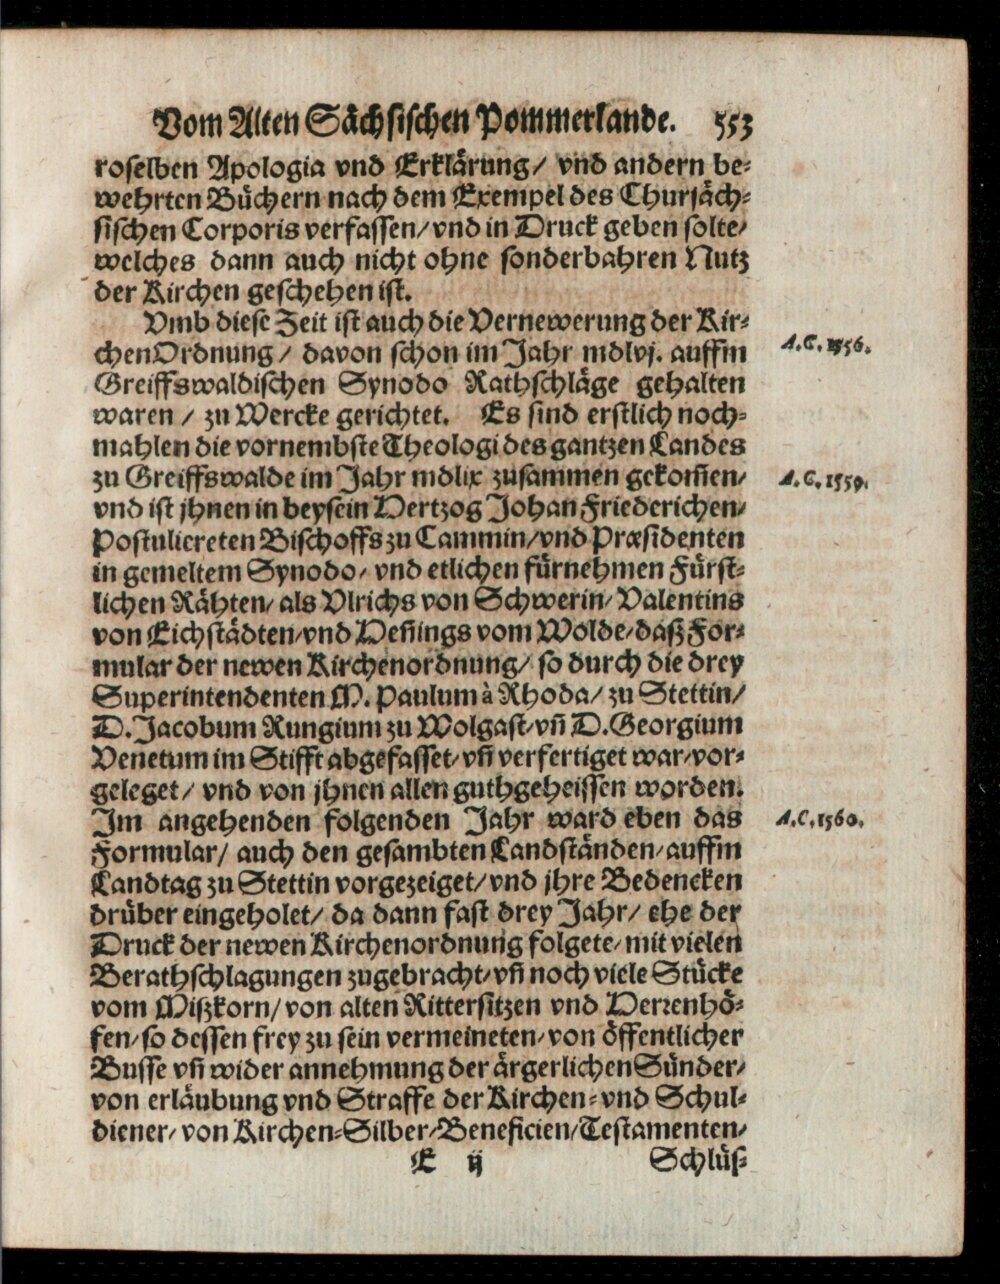 Vom Alten Sächsischen Pommerlande. 553
roselben Apologia vnd Erklärung/ vnd andern be-
wehrten Büchern nach dem Exempel des Chursäch-
sischen Corporis verfassen/ vnd in Druck geben solte/
welches dann auch nicht ohne sonderbahren Nutz
der Kirchen geschehen ist.
Vmb diese Zeit ist auch die Vernewerung der Kir-
chenOrdnung/ davon schon im Jahr mdlvj. auffm
A.C. 1556.
Greiffswaldischen Synodo Rathschläge gehalten
waren / zu Wercke gerichtet. Es sind erstlich noch-
mahlen die vornembste Theologi des gantzen Landes
zu Greiffswalde im Jahr mdlix zusammen gekom̃en/
A.C. 1559.
vnd ist jhnen in beysein Hertzog Johan Friederichen/
Postuliereten Bischoffs zu Cammin/ vnd Præsidenten
in gemeltem Synodo/ vnd etlichen fürnehmen Fürst-
lichen Rähten/ als Vlrichs von Schwerin/ Valentins
von Eichstädten/ vnd Heñings vom Wolde/ daß For-
mular der newen Kirchenordnung/ so durch die drey
Superintendenten M. Paulum à Rhoda/ zu Stettin/
D. Jacobum Rungium zu Wolgast/ vñ D. Georgium
Venetum im Stifft abgefasset/ vñ verfertiget war/ vor-
geleget/ vnd von jhnen allen guthgeheissen worden.
Im angehenden folgenden Jahr ward eben das
A.C. 1560.
Formular/ auch den gesambten Landständen/ auffm
Landtag zu Stettin vorgezeiget/ vnd jhre Bedencken
drüber eingeholet/ da dann fast drey Jahr/ ehe der
Druck der newen Kirchenordnung folgete/ mit vielen
Berathschlagungen zugebracht/ vñ noch viele Stücke
vom Mißkorn/ von alten Rittersitzen vnd Herrenhö-
fen/ so dessen frey zu sein vermeineten/ von öffentlicher
Busse vñ wider annehmung der ärgerlichen Sünder/
von erläubung vnd Straffe der Kirchen- vnd Schul-
diener/ von Kirchen-Silber/ Beneficien/ Testamenten/
E ij Schlüs-